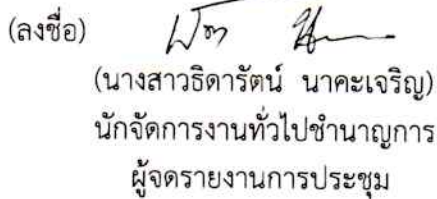 (ลงชื่อ)
(นางสาวธิดารัตน์ นาคะเจริญ)
นักจัดการงานทั่วไปชำนาญการ
ผู้จดรายงานการประชุม